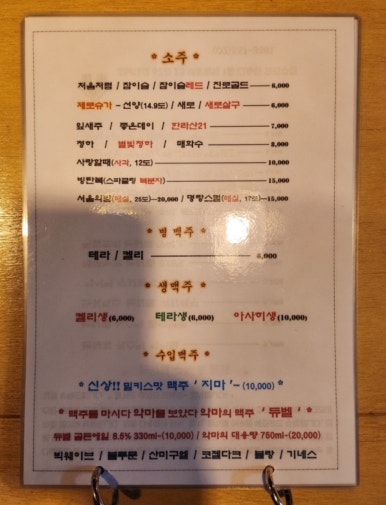 * 소주 *
처음처럼 / 참이슬 / 참이슬레드 / 진로골드 6,000
제로슈가 - 선양(14.9도) / 새로 / 새로살구 6,000
잎새주 / 좋은데이 / 한라산21 7,000
청하 / 별빛청하 / 매화수 8,000
사랑할때(사과, 12도) 10,000
빙탄복(스파클링 복분자) 15,000
서울의밤(매실, 25도)-20,000 / 명랑스컬(매실, 17도)-15,000
* 병 맥주 *
테라 / 켈리 6,000
* 생맥주 *
켈리생(6,000) 테라생(6,000) 아사히생(10,000)
* 수입맥주 *
* 신상!! 밀키스맛 맥주 ' 지마 '-(10,000) *
* 맥주를 마시다 악마를 보았다 악마의 맥주 ' 듀벨 ' *
듀벨 골든에일 8.5% 330ml-(10,000) / 악마의 대용량 750ml-(20,000)
빅웨이브 / 블루문 / 산미구엘 / 코젤다크 / 블랑 / 기네스